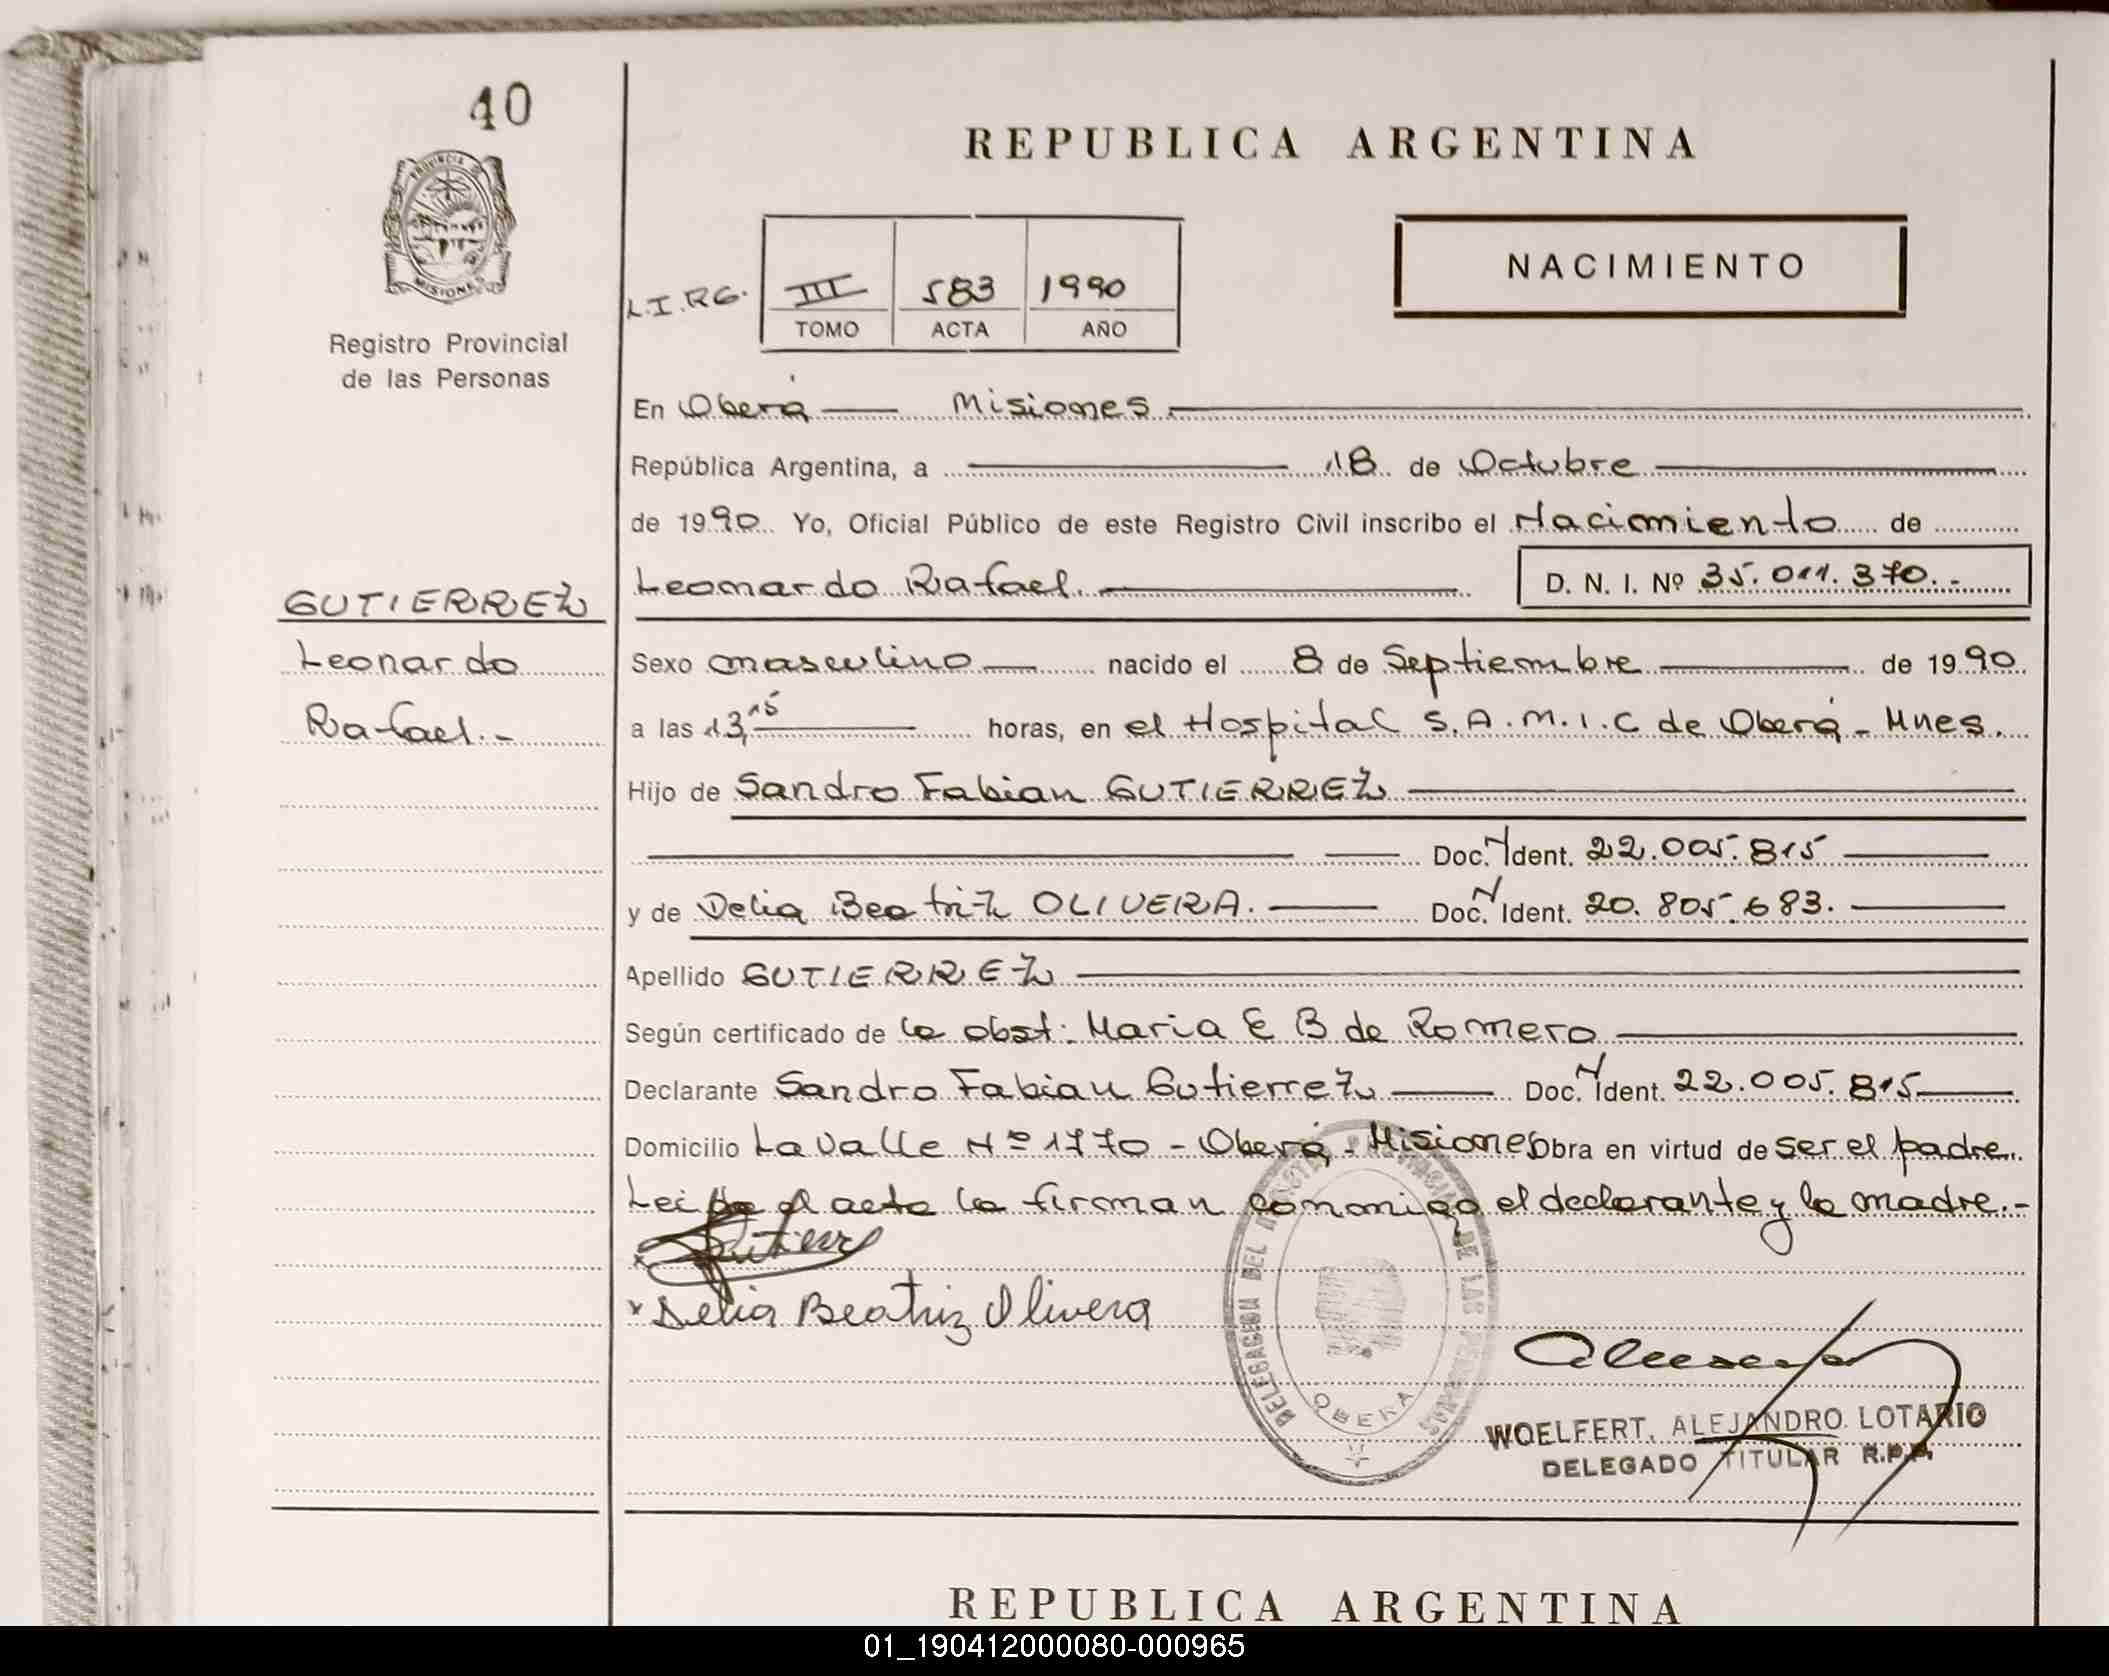 40
REPUBLICA ARGENTINA
PROVINCIA DE
MISIONES
Registro Provincial
de las Personas
NACIMIENTO
L.I.RG.
III 583 1990
TOMO ACTA AÑO
En Oberá Misiones
República Argentina, a 18 de Octubre
de 1990 Yo, Oficial Público de este Registro Civil inscribo el Nacimiento de
Leonardo Rafael. D. N. I. Nº 35.011.370.-
GUTIERREZ
Leonardo
Rafael.-
Sexo masculino nacido el 8 de Septiembre de 1990
a las 13,15 horas, en el Hospital S.A.M.I.C de Oberá - Mnes.
Hijo de Sandro Fabian GUTIERREZ
Doc. N Ident. 22.005.815
y de Delia Beatriz OLIVERA. Doc. N Ident. 20.805.683.
Apellido GUTIERREZ
Según certificado de la obst: Maria E B de Romero
Declarante Sandro Fabian Gutierrez Doc. N Ident. 22.005.815
Domicilio Lavalle Nº 1770 - Oberá - Misiones Obra en virtud de ser el padre.
Leida el acta la firman conmigo el declarante y la madre.-
x Gutierr
x Delia Beatriz Olivera
DELEGACION DEL REGISTRO PROVINCIAL DE LAS PERSONAS
OBERA
WOELFERT, ALEJANDRO LOTARIO
DELEGADO TITULAR R.P.P.
REPUBLICA ARGENTINA
01_190412000080-000965